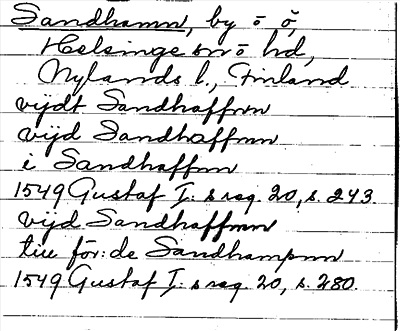 Sandhamn, by o ö,
Helsinge sn o hd,
Nylands l., Finland
vijdt Sandhaffnn
vijd Sandhaffnn
i Sandhaffnn
1549 Gustaf I:s reg. 20, s. 243.
vijd Sandhaffnn
till för:de Sandhampnn
1549 Gustaf I:s reg. 20, s. 280.